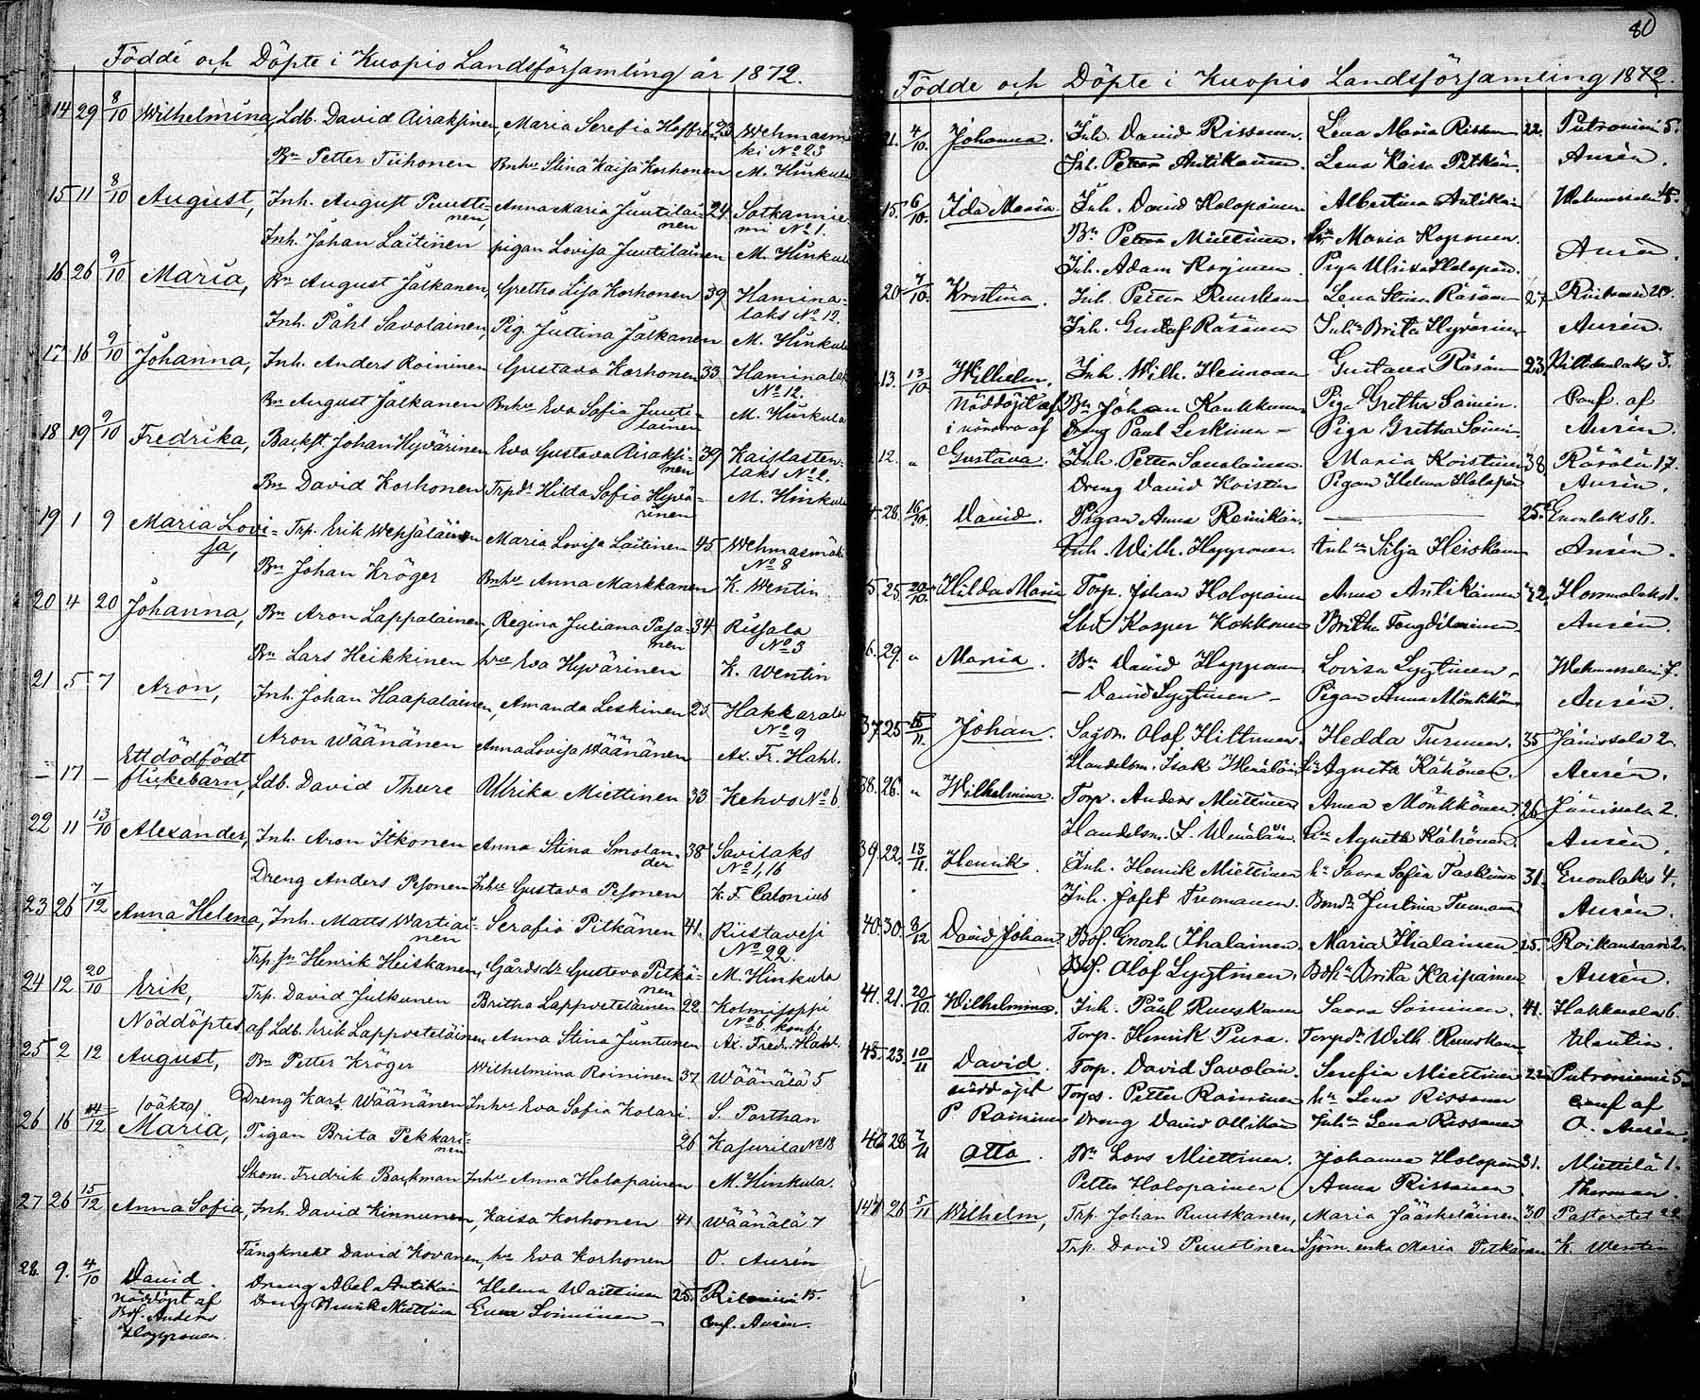 Födde och Döpte i Kuopio Landsförsamling år 1872.
14 29 8/10 Wilhelmina, Ldb. David Airaksinen, Maria Serefia Hoffrén 23 Wehmasmä
ki No 23
Bn Petter Tiihonen Bnhu Stina Kaisa Korhonen M. Hinkula
15 11 8/10 August, Inh. August Puusti- Anna Maria Juutilai- 24 Sotkannie
nen, nen mi No 1.
Inh. Johan Laitinen pigan Lovisa Juutilainen M. Hinkula
16 26 9/10 Maria, Bn August Jalkanen, Gretha Lisa Korhonen 39 Hamina-
laks No 12.
Inh. Påhl Savolainen, Pig. Justina Jalkanen M. Hinkula
17 16 9/10 Johanna, Inh. Anders Roininen Gustava Korhonen 33 Haminalaks
No 12.
Bn August Jalkanen Bnhu Eva Sofia Juuti- M. Hinkula
lainen
18 19 9/10 Fredrika, Backst. Johan Hyvärinen Eva Gustava Airaksi- 39 Kaislasten-
nen laks No 2.
Bn David Korhonen Trpdr Hilda Sofia Hyvä- M. Hinkula
rinen
19 1 9 Maria Lovi- Trp. Erik Wepsäläinen Maria Lovisa Laitinen 45 Wehmasmäki
sa, No 8
Bn Johan Kröger Bnhu Anna Markkanen K. Wentin
20 4 20 Johanna, Bn Aron Lappalainen, Regina Juliana Pasa- 34 Rissala
nen No 3
Bn Lars Heikkinen hu Eva Hyvärinen K. Wentin
21 5 7 Aron, Inh. Johan Haapalainen, Amanda Leskinen 25 Hakkarala
No 9
Aron Wäänänen Anna Lovisa Wäänänen Ax. Fr. Hahl.
Ett dödfödt
— 17 — flickebarn, Ldb. David Thure Ulrika Miettinen 33 Kehvo No 6
22 11 13/10 Alexander, Inh. Aron Itkonen Anna Stina Smolan- 38 Savilaks
der No 1, 16
Dreng Anders Pesonen Inhu Gustava Pesonen K. F. Calonius
23 26 7/12 Anna Helena, Inh. Matts Wartiai- Serafia Pitkänen 41. Riistavesi
nen No 22.
Trp. sn Henrik Heiskanen, Gårdsdr Gustava Pitkä- M. Hinkula
nen
24 12 20/10 Erik, Trp. David Julkunen Britha Lappveteläinen 22 Kolmisoppi
No 6 konf.
Nöddöptes af Ldb. Erik Lappveteläinen Anna Stina Juntunen Ax. Fred. Hahl.
25 2 12 August, Bn Petter Kröger Wilhelmina Roininen 37 Wäänälä 5
Dreng Karl Wäänänen Inhu Eva Sofia Kolari S. Porthan
(oäkta)
26 16 14/12 Maria, Pigan Brita Pekkari- 26 Kasurila No 18
nen
Skom. Fredrik Backman Inhu Anna Holopainen M. Hinkula.
27 26 15/12 Anna Sofia, Inh. David Kinnunen, Kaisa Korhonen 41 Wäänälä 7
Fångknekt David Kovanen, hu Eva Korhonen O. Aurén
28. 9. 4/10 David. Dreng Abel Antikain Helena Waittinen 25. 15.
Nöddöpt af Dreng Henrik Miettinen Soininen
Bdf. Anders Conf. Aurén.
Happonen.
80
Födde och Döpte i Kuopio Landsförsamling 1872.
21. 4/10. Johanna. Inh. David Rissanen. Lena Maria Rissanen 22. Putroniemi 5.
Inh. Petter Antikainen. Lena Kaisa Pitkän. Aurén.
15. 6/10. Ida Maria Inh. David Holopainen Albertina Antikain Wehmersalmi 4.
Bn Petter Miettinen. hu Maria Koponen.
Inh. Adam Korjonen. Piga Ulrika Holopain. Aurén.
20. 7/10. Kristina. Inh. Petter Ruuskanen Lena Stina Räsänen 27.
Inh. Gustaf Räsänen Inhu Brita Hyvärinen Aurén.
13. 13/10. Wilhelm. Inh. Wilh. Heinonen Gustava Räsänen 23. 3.
Nöddöpt af Bn Johan Kaukkanen Piga Gretha Soinin. Conf. af
Dreng Paul Leskinen — Piga Gretha Soinin. Aurén.
12. " Gustava. Inh. Petter Savolainen. Maria Koistinen 38 Räsälä 17.
Dreng David Koistin Pigan Helena Holopain Aurén.
4. 28. 16/10. David. Pigan Anna Reinikain. — 25. Enonlaks 8.
Inh. Wilh. Happonen. Inhu Silja Heiskanen Aurén.
5. 25. 20/10. Hilda Maria Torp. Johan Holopainen Anna Antikainen 42. 1.
Kasper Kokkonen Britha Tengdilainen Aurén.
6. 29. " Maria. Bn David Happonen Lovisa Lyytinen — Wehmersalmi 7.
— David Lyytinen — Pigan Anna Mönkkön Aurén.
37. 25. 15/11. Johan. Sagom. Olof Hiltunen. Hedda Turunen. 35 Jänissalo 2.
Handelsm. Isak Wenäläin. hu Agneta Kähönen. Aurén.
38. 26. " Wilhelmina. Torp. Anders Miettinen Anna Mönkkönen 26. Jänissalo 2.
Handelsm. I. Wenäläin. hu Agneta Kähönen. Aurén.
39. 22. 13/11. Henrik. Inh. Henrik Miettinen hu Saara Sofia Taskinen 31. Enonlaks 4.
Inh. Josef Tuomanen. Bondr Justina Tuomanen Aurén.
40. 30. 3/12 David Johan. Bdf. Enoch Ihalainen. Maria Ihalainen 25. Roikansaari 2.
Bdf. Olof Lyytinen. Bdhu Brita Kaipainen Aurén.
41. 21. 20/10. Wilhelmina. Inh. Påhl Ruuskanen Saara Soininen. 41. Hakkarala 6.
Torp. Henrik Pura. Torpdr Wilh. Ruuskan. Wentin.
45. 23. 10/11 David. Torp. David Savolain. Serefia Miettinen 22. Putroniemi 5
nöddöpt Torps. Petter Raininen hu Lena Rissanen conf af
P. Raininen Dreng David Ollikain Inhu Lena Rissanen O. Aurén.
46 28 7/11 Otto. Bn Lars Miettinen. Johanna Holopain 31. Miettilä 1.
Petter Holopainen Anna Rissanen Therman.
147 26 5/11 Wilhelm, Trp. Johan Ruuskanen, Maria Jääskeläinen 30 Pastoratet 22
Trp. David Puustinen Sjöm. enka Maria Pitkänen K. Wentin